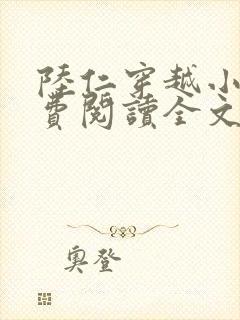 陸仁穿越小
費閱讀全文
奧登